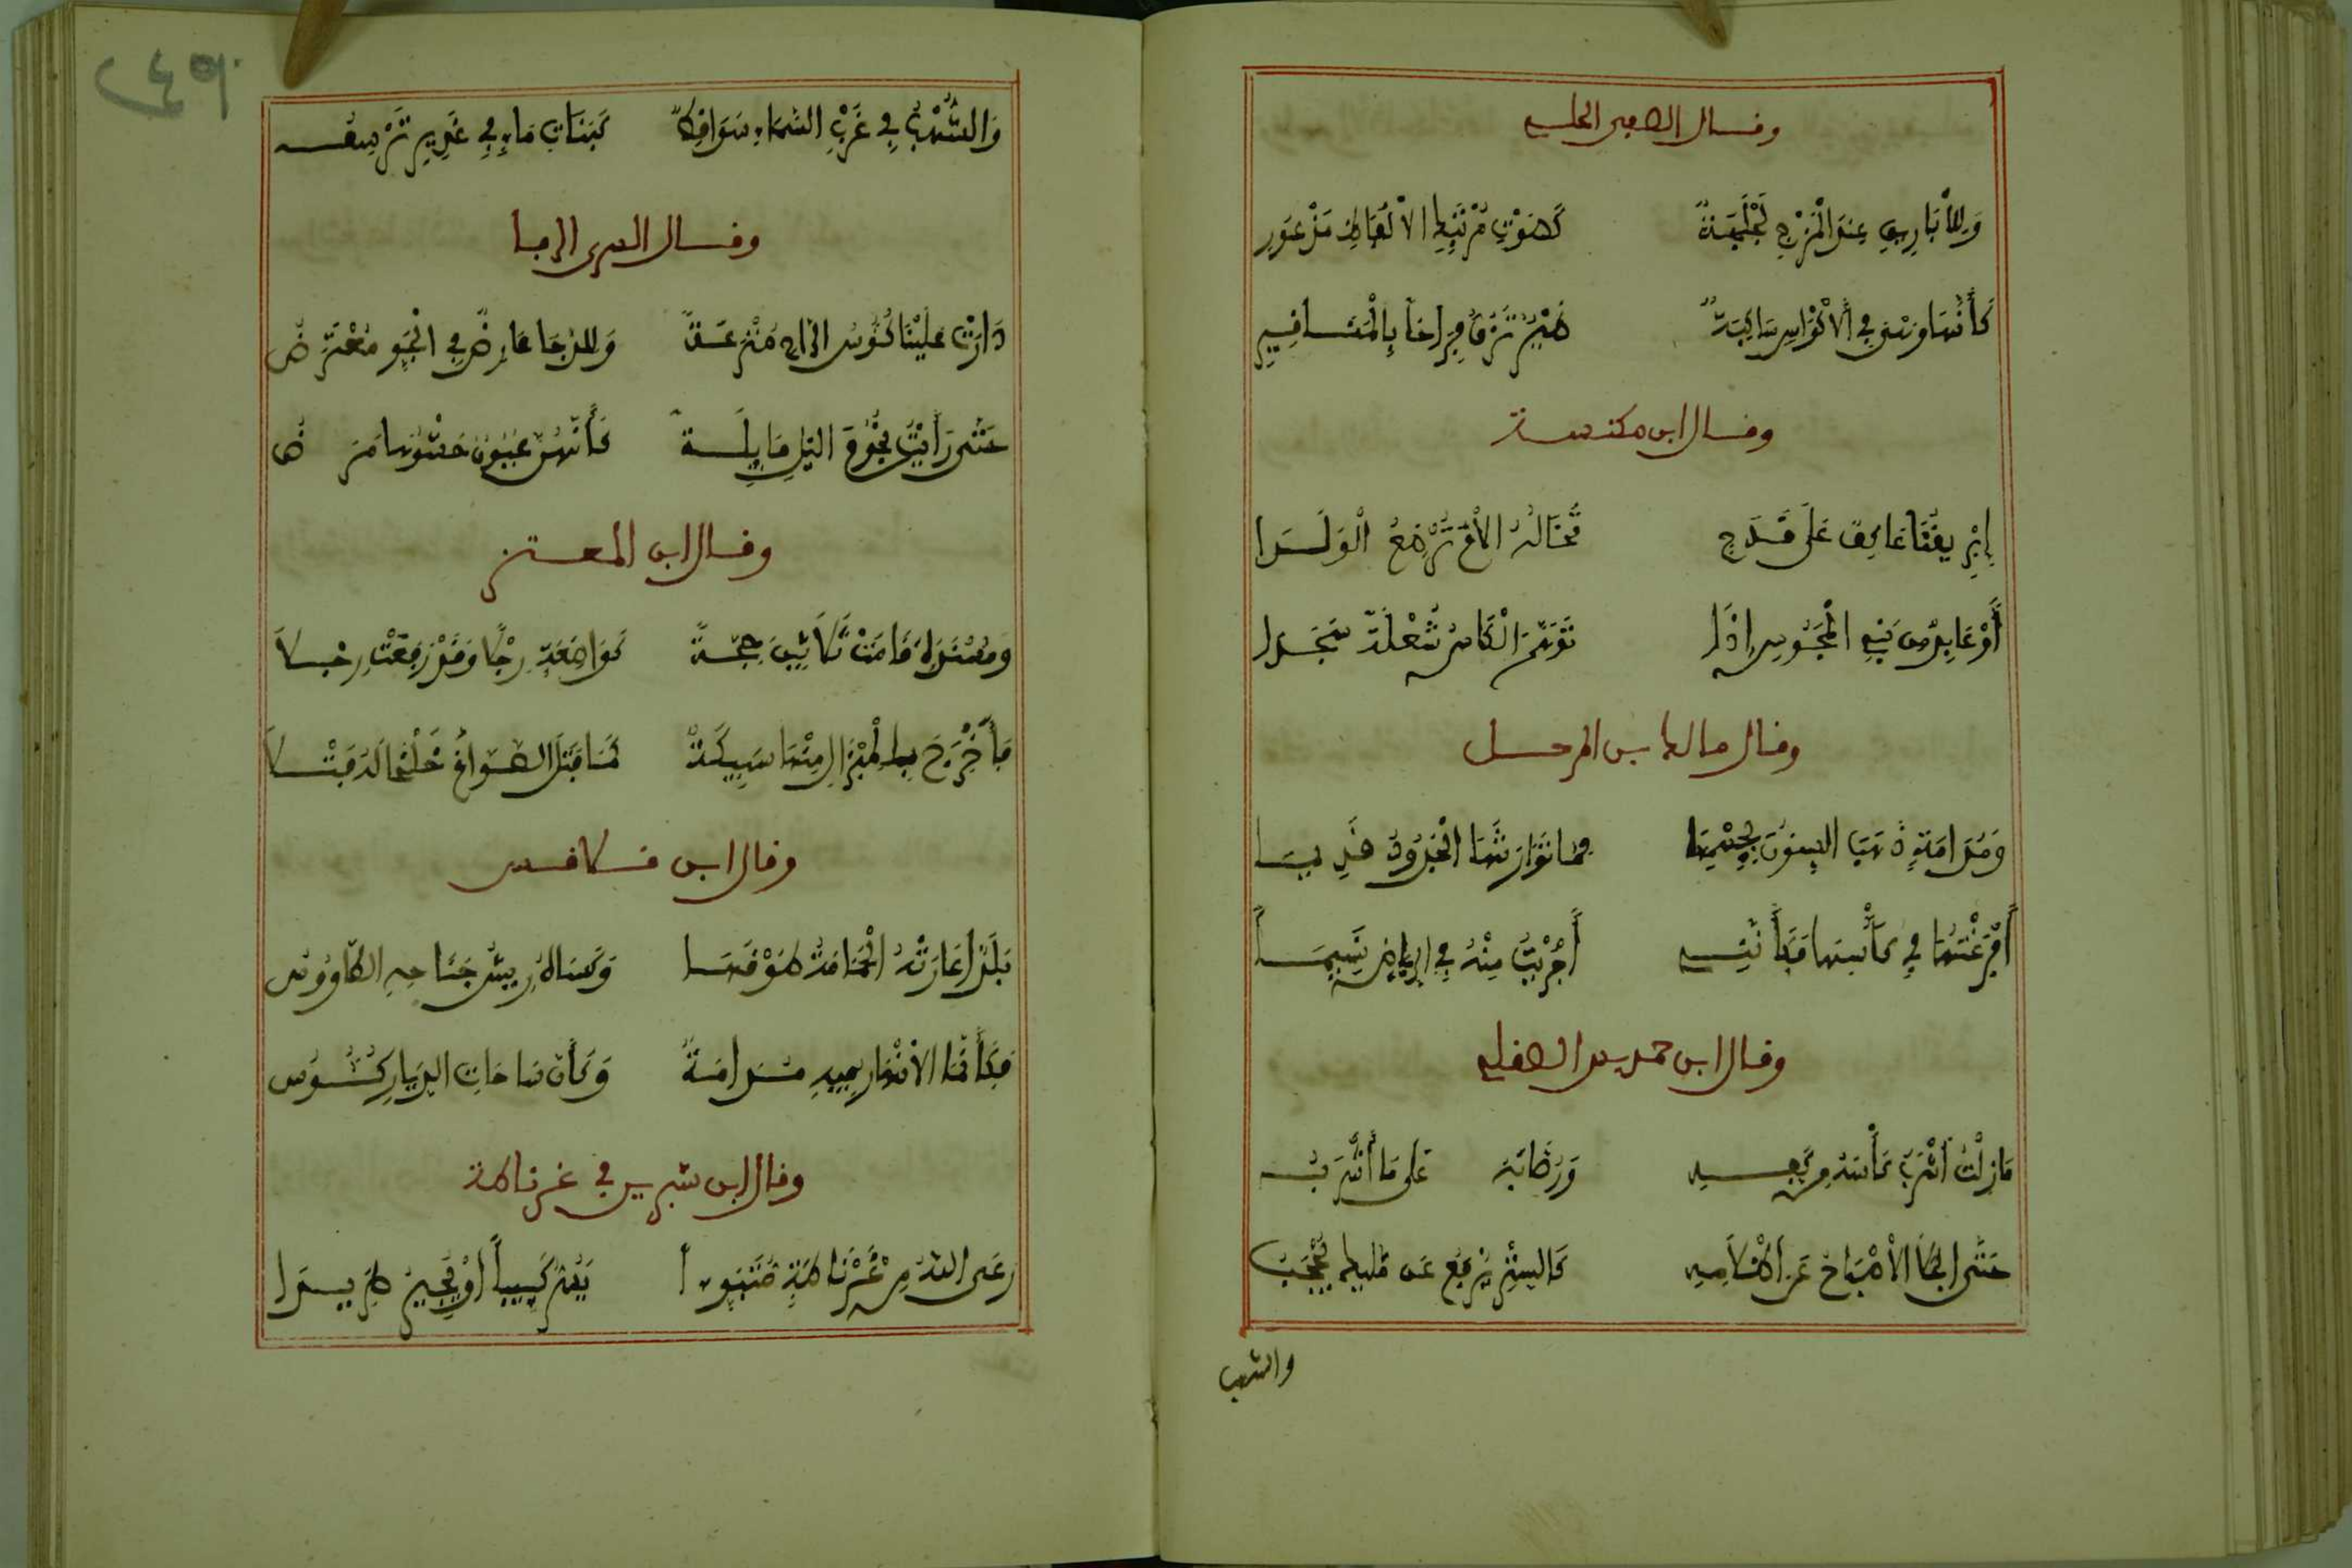 وقال الصفي الحلي
وَلِلْأَبَارِيقِ عِندَ الْمَزْجِ لَجْلَجَةٌ كَصَوْتِ مُرْتَبِكِ الْأَلْفَاظِ مَذْعُورِ
كَأَنَّهَا وَهْيَ فِي الْأَكْوَاسِ سَاكِبَةٌ طَيْرٌ تَزُقُّ فِرَاخاً بِالْمَنَاقِيرِ
وقال ابن مكنسة
إِبْرِيقُنَا عَاكِفٌ عَلَى قَدَحٍ تَخَالُهُ الْأُمَّ تُرْضِعُ الْوَلَدَا
أَوْ عَابِدٌ مِن بَنِي الْمَجُوسِ إِذَا تَوَهَّمَ الْكَاسَ شُعْلَةً سَجَدَا
وقال مالك بن المرحل
وَمُدَامَةٍ ذَهَبَ السِنُونَ بِجِسْمِهَا مِمَّا تَوَارَثَهَا الْجُدُودُ قَدِيمَا
أَفْرَغْتُهَا فِي كَأْسِهَا فَكَأَنَّنِي أَجْرَيْتُ مِنْهُ فِي الرِيَاضِ نَسِيمَا
وقال ابن حمديس الصقلي
مَازِلْتُ أَشْرَبُ كَأْسَهُ مِن كَفِّهِ وَرُضَابُهُ عَلَى مَا أَشْرَبُ
حَتَّى انجَلَى الْإصْبَاحُ عَن إِظْلَامِهِ كَالسِتْرِ يُرْفَعُ عَن مَلِيكٍ يُحْجَبُ
والشهب
وَالشُّهْبُ فِي غَرْبِ السَمَاءِ سَوَاقِطٌ كَبَنَاتِ مَاءٍ فِي غَدِيرٍ تَرْسُبُ
وقال السري الرفا
دَارَتْ عَلَيْنَا كُئُوسُ الرَّاحِ مُتْرَعَةً وَلِلدُّجَا عَارِضٌ فِي الْجَوِ مُعْتَرِضُ
حَتَّى رَأَيْتُ نُجُومَ اللَيْلِ مَايِلَةً كَأَنَّهُنَّ عُيُونٌ حَشْوُهَا مَرَضُ
وقال ابن المعتز
وَخَمَّارَةٍ
فَأَخْرَجَ بِالْمِبْزَالِ مِنْهَا سَبِيكَةً كَمَا فَتَلَ الصَوَّاغُ خَلْخَالَهُ فَتْلَا
وقال ابن قلاقس
بَلَدٌ أَعَارَتْهُ الْحَمَامَةُ طَوْقَهَا وَكَسَاهُ رِيشَ جَنَاحِهِ الطَّاوُوسُ
فَكَأَنَّمَا الْأَنْهَارُ فِيهِ مُدَامَةٌ وَكَأَنَّ سَاحَاتِ الدِيَارِ كُئُوسُ
وقال ابن شبرين في غرناطة
رعَى اللهُ مِنْ غَرْنَاطَةٍ مُتَبَوءاً يَسُرُّ كَئِيباً أَوْ يُجِيرُ طَرِيدَا